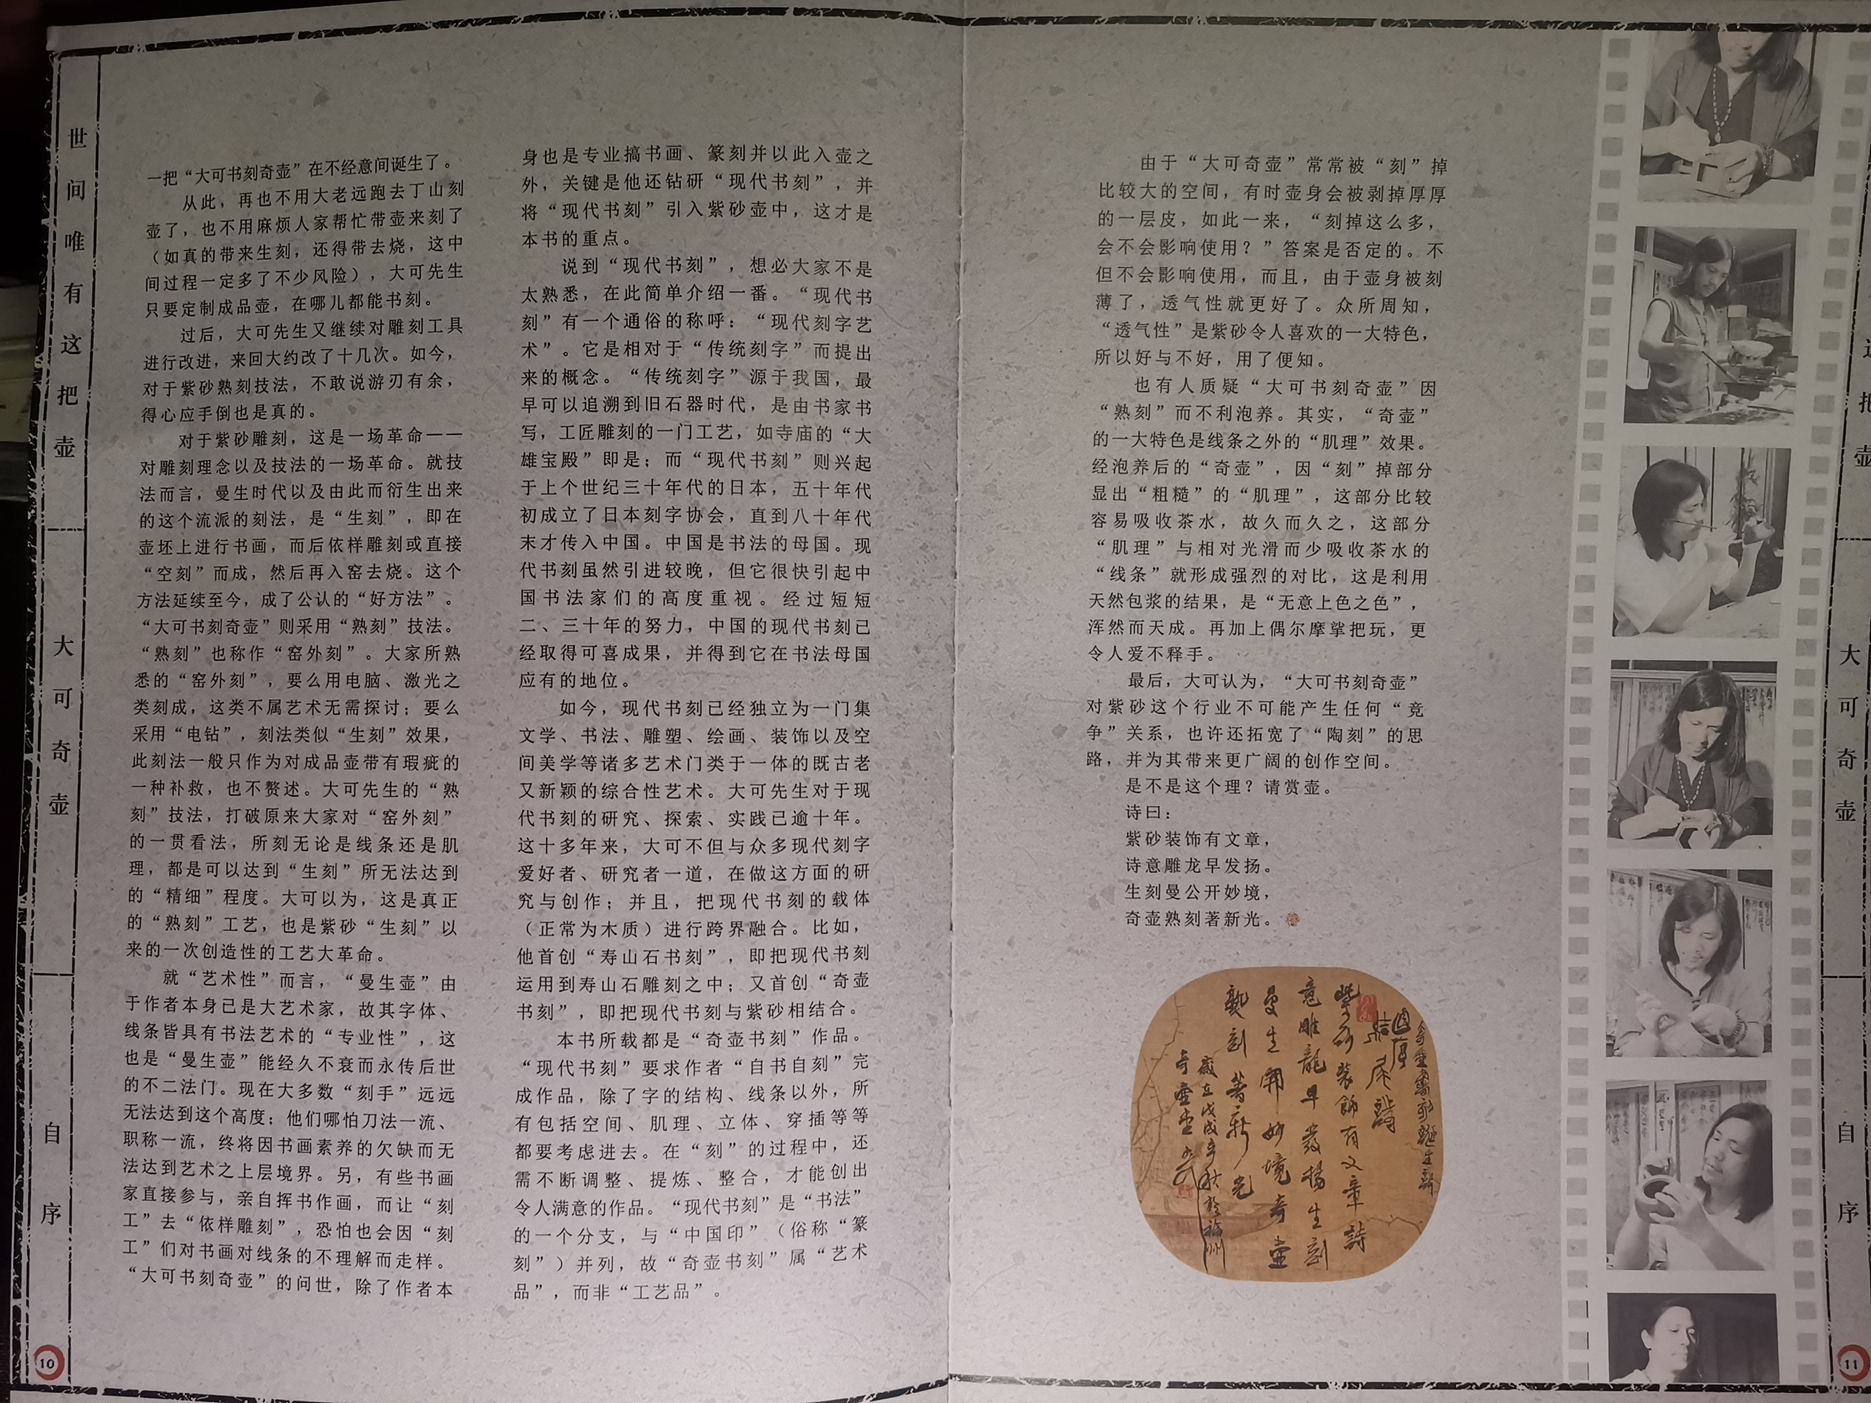 世间唯有这把壶
大可奇壶
自序
10
一把“大可书刻奇壶”在不经意间诞生了。
从此，再也不用大老远跑去丁山刻
壶了，也不用麻烦人家帮忙带壶来刻了
（如真的带来生刻，还得带去烧，这中
间过程一定多了不少风险），大可先生
只要定制成品壶，在哪儿都能书刻。
过后，大可先生又继续对雕刻工具
进行改进，来回大约改了十几次。如今，
对于紫砂熟刻技法，不敢说游刃有余，
得心应手倒也是真的。
对于紫砂雕刻，这是一场革命——
对雕刻理念以及技法的一场革命。就技
法而言，曼生时代以及由此而衍生出来
的这个流派的刻法，是“生刻”，即在
壶坯上进行书画，而后依样雕刻或直接
“空刻”而成，然后再入窑去烧。这个
方法延续至今，成了公认的“好方法”。
“大可书刻奇壶”则采用“熟刻”技法。
“熟刻”也称作“窑外刻”。大家所熟
悉的“窑外刻”，要么用电脑、激光之
类刻成，这类不属艺术无需探讨；要么
采用“电钻”，刻法类似“生刻”效果，
此刻法一般只作为对成品壶带有瑕疵的
一种补救，也不赘述。大可先生的“熟
刻”技法，打破原来大家对“窑外刻”
的一贯看法，所刻无论是线条还是肌
理，都是可以达到“生刻”所无法达到
的“精细”程度。大可以为，这是真正
的“熟刻”工艺，也是紫砂“生刻”以
来的一次创造性的工艺大革命。
就“艺术性”而言，“曼生壶”由
于作者本身已是大艺术家，故其字体、
线条皆具有书法艺术的“专业性”，这
也是“曼生壶”能经久不衰而永传后世
的不二法门。现在大多数“刻手”远远
无法达到这个高度；他们哪怕刀法一流、
职称一流，终将因书画素养的欠缺而无
法达到艺术之上层境界。另，有些书画
家直接参与，亲自挥书作画，而让“刻
工”去“依样雕刻”，恐怕也会因“刻
工”们对书画对线条的不理解而走样。
“大可书刻奇壶”的问世，除了作者本
身也是专业搞书画、篆刻并以此入壶之
外，关键是他还钻研“现代书刻”，并
将“现代书刻”引入紫砂壶中，这才是
本书的重点。
说到“现代书刻”，想必大家不是
太熟悉，在此简单介绍一番。“现代书
刻”有一个通俗的称呼：“现代刻字艺
术”。它是相对于“传统刻字”而提出
来的概念。“传统刻字”源于我国，最
早可以追溯到旧石器时代，是由书家书
写，工匠雕刻的一门工艺，如寺庙的“大
雄宝殿”即是；而“现代书刻”则兴起
于上个世纪三十年代的日本，五十年代
初成立了日本刻字协会，直到八十年代
末才传入中国。中国是书法的母国。现
代书刻虽然引进较晚，但它很快引起中
国书法家们的高度重视。经过短短
二、三十年的努力，中国的现代书刻已
经取得可喜成果，并得到它在书法母国
应有的地位。
如今，现代书刻已经独立为一门集
文学、书法、雕塑、绘画、装饰以及空
间美学等诸多艺术门类于一体的既古老
又新颖的综合性艺术。大可先生对于现
代书刻的研究、探索、实践已逾十年。
这十多年来，大可不但与众多现代刻字
爱好者、研究者一道，在做这方面的研
究与创作；并且，把现代书刻的载体
（正常为木质）进行跨界融合。比如，
他首创“寿山石书刻”，即把现代书刻
运用到寿山石雕刻之中；又首创“奇壶
书刻”，即把现代书刻与紫砂相结合。
本书所载都是“奇壶书刻”作品。
“现代书刻”要求作者“自书自刻”完
成作品，除了字的结构、线条以外，所
有包括空间、肌理、立体、穿插等等
都要考虑进去。在“刻”的过程中，还
需不断调整、提炼、整合，才能创出
令人满意的作品。“现代书刻”是“书法”
的一个分支，与“中国印”（俗称“篆
刻”）并列，故“奇壶书刻”属“艺术
品”，而非“工艺品”。
由于“大可奇壶”常常被“刻”掉
比较大的空间，有时壶身会被剥掉厚厚
的一层皮，如此一来，“刻掉这么多，
会不会影响使用？”答案是否定的。不
但不会影响使用，而且，由于壶身被刻
薄了，透气性就更好了。众所周知，
“透气性”是紫砂令人喜欢的一大特色，
所以好与不好，用了便知。
也有人质疑“大可书刻奇壶”因
“熟刻”而不利泡养。其实，“奇壶”
的一大特色是线条之外的“肌理”效果。
经泡养后的“奇壶”，因“刻”掉部分
显出“粗糙”的“肌理”，这部分比较
容易吸收茶水，故久而久之，这部分
“肌理”与相对光滑而少吸收茶水的
“线条”就形成强烈的对比，这是利用
天然包浆的结果，是“无意上色之色”，
浑然而天成。再加上偶尔摩挲把玩，更
令人爱不释手。
最后，大可认为，“大可书刻奇壶”
对紫砂这个行业不可能产生任何“竞
争”关系，也许还拓宽了“陶刻”的思
路，并为其带来更广阔的创作空间。
是不是这个理？请赏壶。
诗曰：
紫砂装饰有文章，
诗意雕龙早发扬。
生刻曼公开妙境，
奇壶熟刻著新光。
紫砂装饰有文章詩
意雕龍早發揚生刻
曼生開妙境奇壶
熟刻著新光
歲在戊戌年秋於福州
奇壶堂
这把壶
大可奇壶
自序
11